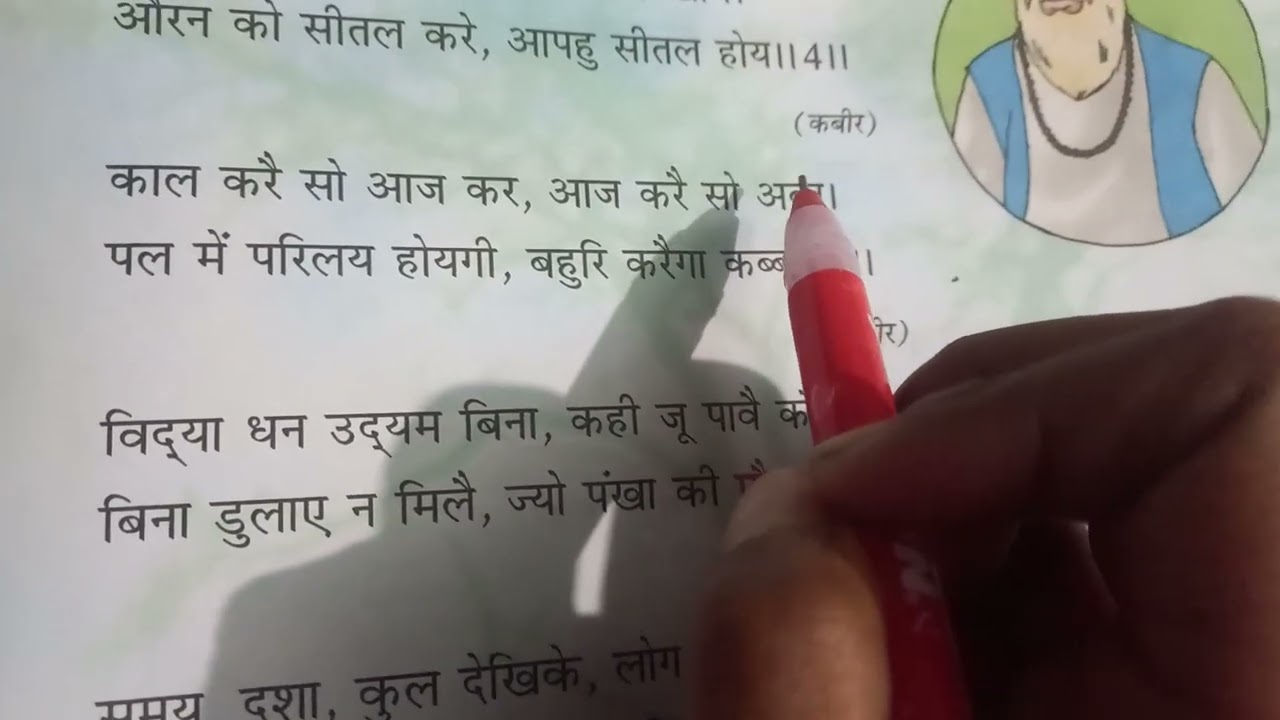 औरन को सीतल करे, आपहु सीतल होय।।4।।
(कबीर)
काल करै सो आज कर, आज करै सो
पल में परिलय होयगी, बहुरि करैगा
विद्‌या धन उद्‌यम बिना, कही जू पावै
बिना डुलाए न मिलै, ज्यो पंखा की
समय, दशा, कुल देखिके, लोग